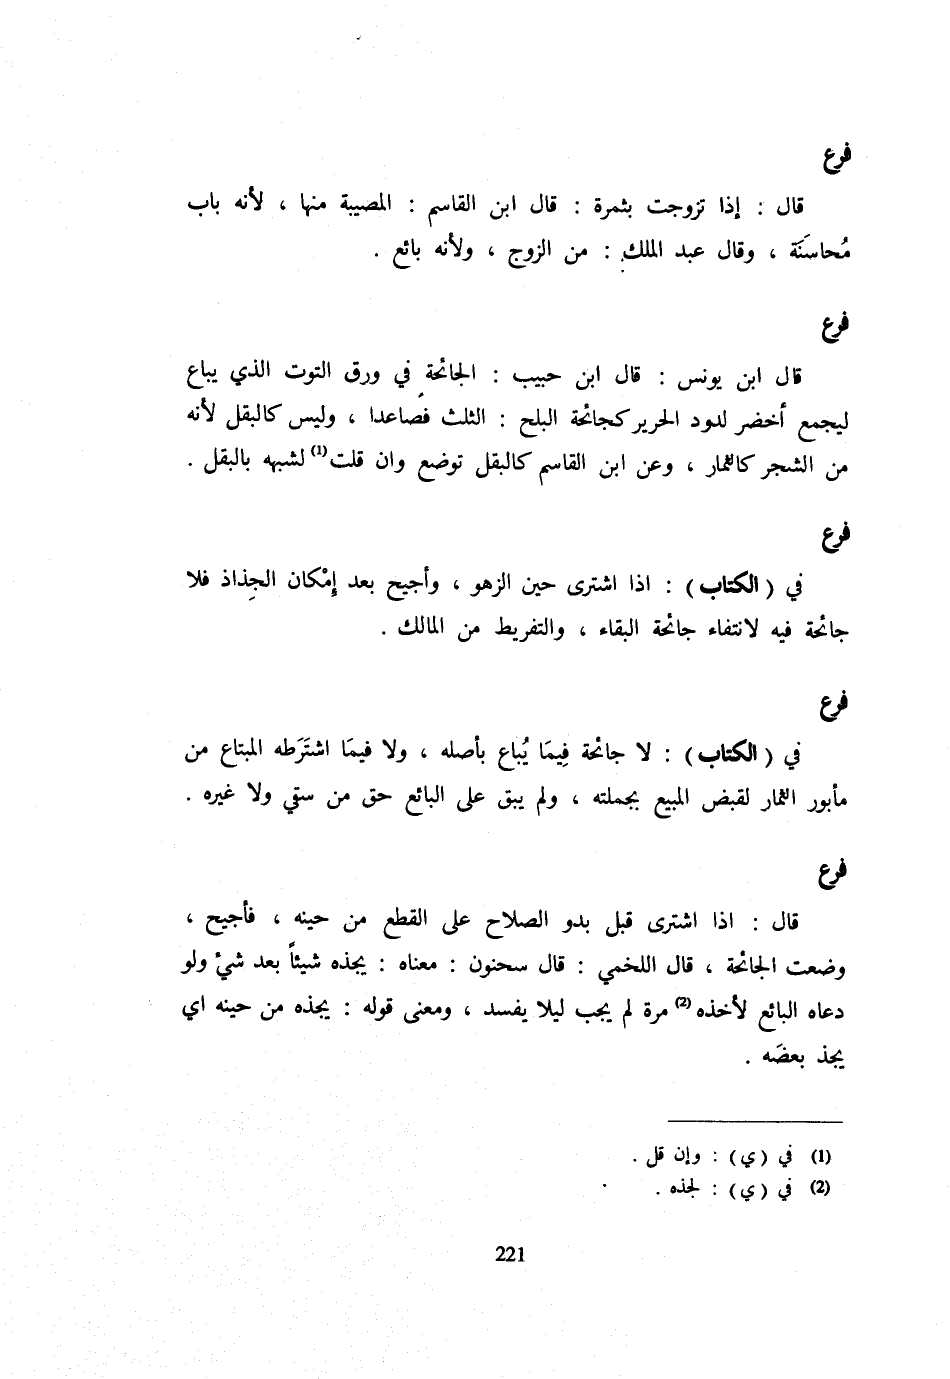 فرع
قال : إذا تزوجت بثمرة : قال ابن القاسم : المصيبة منها ، لأنه باب
مُحاسَنَة ، وقال عبد الملك : من الزوج ، ولأنه بائع .
فرع
قال ابن يونس : قال ابن حبيب : الجائحة في ورق التوت الذي يباع
ليجمع أخضر لدود الحرير كجائحة البلح : الثلث فصاعدا ، وليس كالبقل لأنه
من الشجر كالثمار ، وعن ابن القاسم كالبقل توضع وان قلت(1) لشبهه بالبقل .
فرع
في ( الكتاب ) : اذا اشترى حين الزهو ، وأجيح بعد إِمْكان الجِذاذ فلا
جائحة فيه لانتفاء جائحة البقاء ، والتفريط من المالك .
فرع
في ( الكتاب ) : لا جائحة فِيمَا يُباع بأصله ، ولا فيمَا اشتَرَطه المبتاع من
مأبور الثمار لقبض المبيع بجملته ، ولم يبق على البائع حق من سقي ولا غيره .
فرع
قال : اذا اشترى قبل بدو الصلاح على القطع من حينه ، فأجيح ،
وضعت الجائحة ، قال اللخمي : قال سحنون : معناه : يجذه شيئاً بعد شيْ ولو
دعاه البائع لأخذه(2) مرة لم يجب ليلا يفسد ، ومعنى قوله : يجذه من حينه اي
يجذ بعضَه .
(1) في (ي) : وإن قل .
(2) في (ي) : لجذه .
221